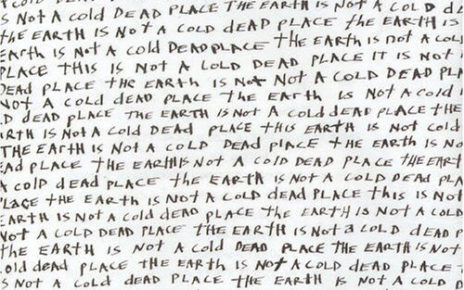 COLD DEAD PLACE THE EARTH IS NOT A COLD DEAD
S NOT A COLD DEAD PLACE THE EARTH IS NOT A COLD d
the EARTH IS NOT A COLD DEAD PLACE the EARTH IS NOT A
EARth is Not A cold DEADPLACE tHE EARth is not A COLI
PLACE THIS IS NOT A LOLD DEAD PLACE IT IS NOT
DEAd PLACE tHE EARTH IS Not NOT A COLD DEAD PLA
NOT A COLD dEAD PLACE tHE EARtH IS NOtA cold i
D DEAD PLACE THE EARTH IS NOT A COLDdEAD PLACE tHE
ARTH IS NOT A COLD DEAD PLACE tHIS EARTH IS NOT cold
THE EARTH IS NOT A COLD DEAD PLAcE tHE EARTH IS NO
EAD PLACE THE EARTHISNOT A COLD DEAD PLACE tHE EART
A COLD dEAD PLACE tHE EARTH IS NOT A COLD DEAD PLACE
PLACE tHE EARTH IS NOT A COLD dEAD PLACE tHIS IS NOT
EARTH IS NOT A COLD dEAD PLACE tHE EARTH IS NOT A COLD
NOT A COLD DEAD PLACE tHE EARTH IS NOT a COLD dEAD P
tHE EARTH IS NOT A COld DEAD PLACE tHE EARTH IS NOT
OLD dEAd PLACE tHE EARTH IS NOT A COLD DEAD PLACE
S NOT A COLD dEAD PLACE THE EARTH IS NOT A COLD D